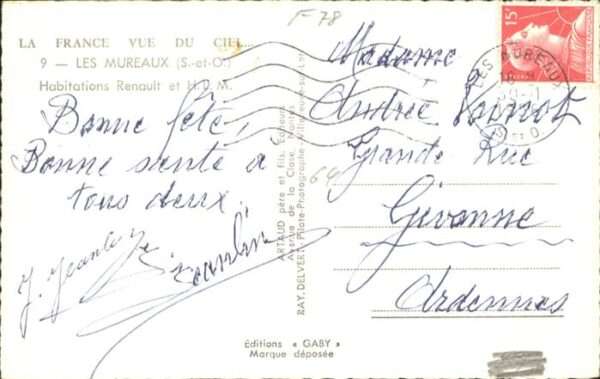 F-78
LA FRANCE VUE DU CIEL...
9 - LES MUREAUX (S.-et-O.)
Habitations Renault et H.L.M.
Bonne fête,
Bonne sente à
tous deux.
J. Jeanlin
Jeanlin
Madame
Andrée
Grande Rue
Givonne
Ardennes
15F
LES MUREAUX
64
ARTAUD père et fils, Editeurs
Avenue de la Close, Nantes
RAY. DELVERT, Pilote-Photographe, Villeneuve-sur-Lot
Éditions « GABY »
Marque déposée